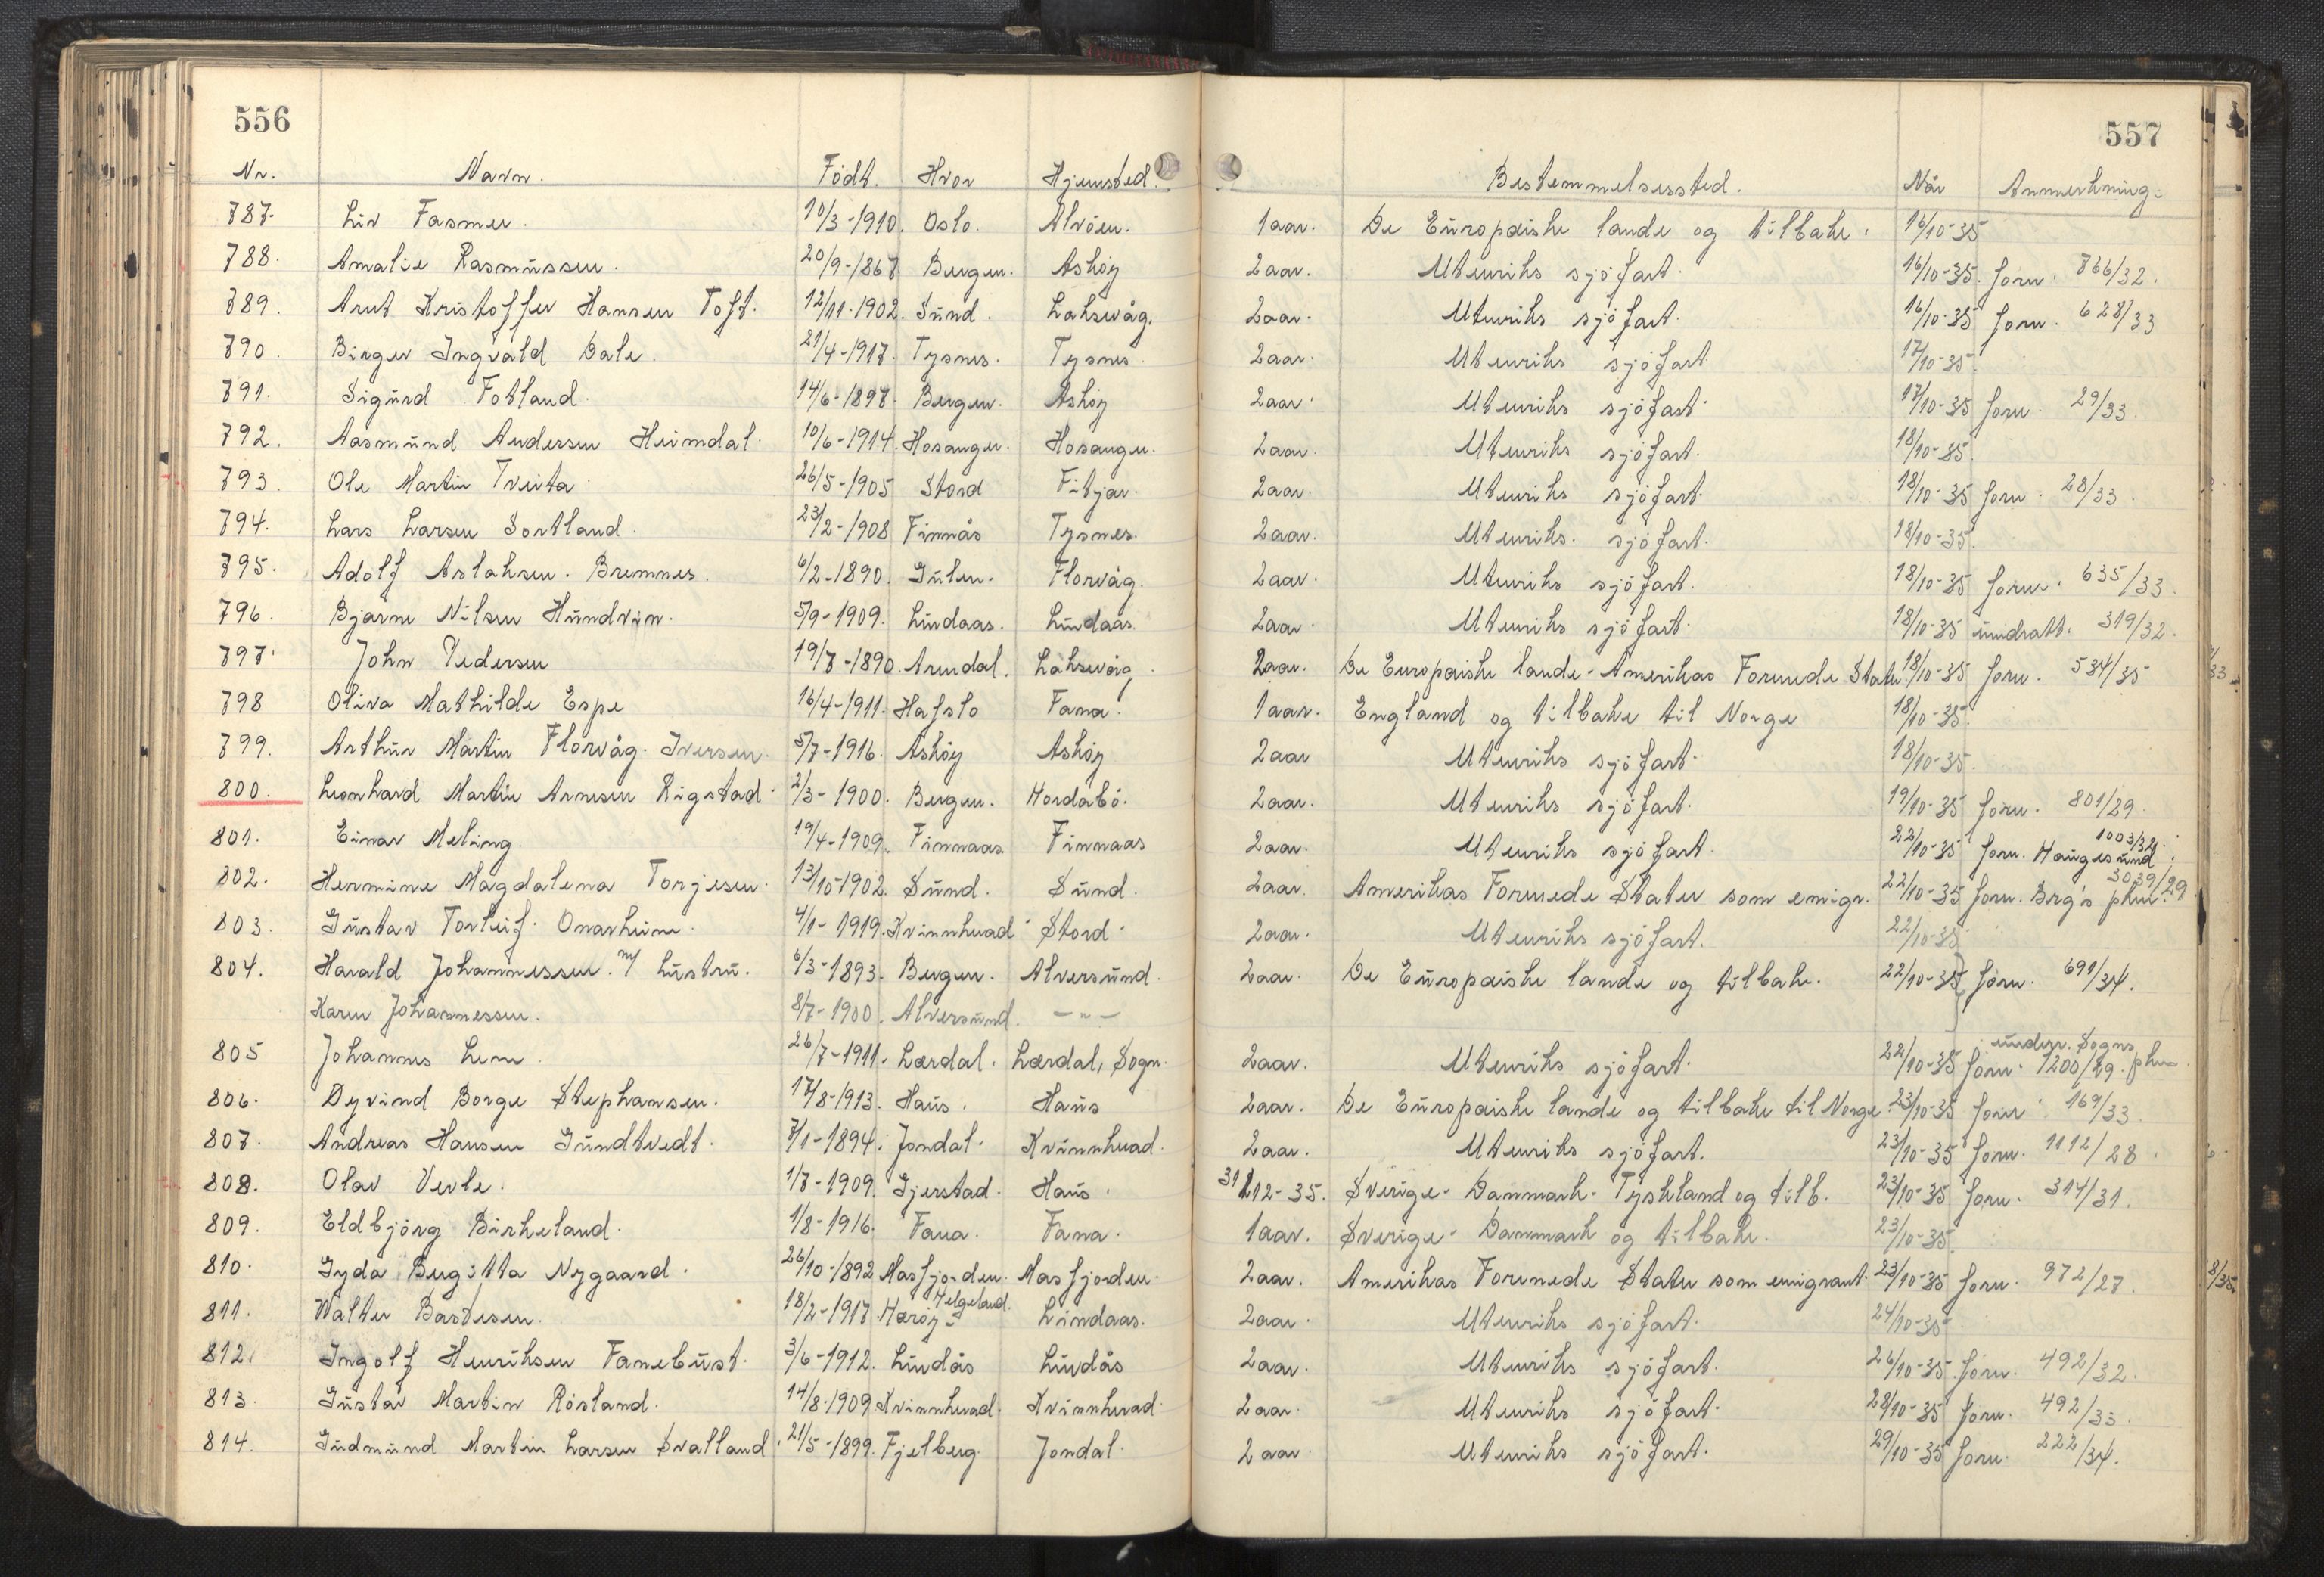 556
557
Nr. Navn. Födt. Hvor Hjemsted. Bestemmelsessted. Når Anmerkning.
787. Liv Fasmer. 10/3-1910. Oslo. Alvöen. 1 aar. De Europæiske lande og tilbake. 16/10-35
788. Amalie Rasmussen. 20/9-1867 Bergen. Askøy 2 aar. Utenriks sjöfart. 16/10-35. forn. 766/32.
789. Arnt Kristoffer Hansen Toft. 12/11-1902. Sund. Laksevåg. 2 aar. Utenriks sjöfart. 16/10-35 forn. 628/33
790. Birger Ingvald Dale. 21/4-1917. Tysnes. Tysnes. 2 aar. Utenriks sjöfart 17/10-35.
791. Sigurd Fotland. 14/6-1897. Bergen. Askøy 2 aar. Utenriks sjöfart. 17/10-35 forn. 29/33.
792. Aasmund Andersen Heimdal. 10/6-1914. Hosanger. Hosanger. 2 aar. Utenriks sjöfart. 18/10-35.
793 Ole Martin Tveita 26/5-1905 Stord Fitjar. 2 aar. Utenriks sjöfart. 18/10-35 forn. 28/33.
794. Lars Larsen Sortland. 23/2-1908 Finnås Tysnes. 2 aar. Utenriks sjöfart. 18/10-35.
795. Adolf Aslaksen. Bremnes. 6/2-1890. Gulen. Florvåg. 2 aar. Utenriks sjöfart. 18/10-35 forn. 635/33.
796. Bjarne Nilsen Hundvin. 5/9-1909. Lindaas. Lindaas. 2 aar. Utenriks sjöfart. 18/10-35 inndratt. 319/32.
797. John Pedersen 19/7-1890. Arendal. Laksevåg. 2 aar. De Europæiske lande - Amerikas Forenede Stater. 18/10-35 forn. 534/35
798 Oliva Mathilde Espe 16/4-1911. Hafslo Fana. 1 aar. England og tilbake til Norge 18/10-35.
799. Arthur Martin Florvåg. Iversen. 5/7-1916. Askøy Askøy 2 aar Utenriks sjöfart. 18/10-35.
800. Leonhard Martin Arnesen Rigstad. 2/3-1900. Bergen. Hordabö. 2 aar. Utenriks sjöfart. 19/10-35 forn. 801/29.
801. Einar Meling. 19/4-1909. Finnaas. Finnaas 2 aar. Utenriks sjöfart. 22/10-35 forn. Haugesund 1003/32.
802. Hermine Magdalena Torjesen. 13/10-1902. Sund. Sund. 2 aar. Amerikas Forenede Stater som emigr. 22/10-35 forn. Brg's pkm. 3039/29.
803. Gustav Torleif. Onarheim. 4/1-1919. Kvinnherad Stord. 2 aar. Utenriks sjöfart. 22/10-35
804. Harald Johannessen. m/ hustru. 6/3-1893. Bergen. Alversund. 2 aar. De Europæiske lande og tilbake. 22/10-35 forn. 691/34.
Karen Johannessen. 8/7-1900. Alversund. - " -
805 Johannes Lem. 26/7-1911. Lærdal. Lærdal, Sogn. 2 aar. Utenriks sjöfart. 22/10-35 forn. 1200/29. Sogns pkm.
806. Øyvind Borge Stephansen. 17/8-1913. Haus. Haus 2 aar. De Europæiske lande og tilbake til Norge. 23/10-35 forn. 169/33.
807. Andreas Hansen Gundtvedt. 7/1-1894. Jondal. Kvinnherad. 2 aar. Utenriks sjöfart. 23/10-35 forn. 1112/28.
808. Olav Verle. 1/7-1909. Gjerstad. Haus. 31/12-35. Sverige - Danmark - Tyskland og tilb. 23/10-35 forn. 314/31.
809. Eldbjörg Birkeland. 1/8-1916. Fana. Fana. 1 aar. Sverige - Danmark og tilbake. 23/10-35.
810. Gyda Bergitta Nygaard. 26/10-1892 Masfjorden. Masfjorden. 2 aar. Amerikas Forenede Stater som emigrant. 23/10-35 forn. 972/27.
811. Walter Bastesen. 18/2-1917 Herøy - Helgeland. Lindaas. 2 aar. Utenriks sjöfart. 24/10-35
812. Ingolf Henriksen Fanebust. 3/6-1912. Lindås Lindås 2 aar. Utenriks sjöfart. 26/10-35. forn. 492/32.
813. Gustav Martin Røsland. 14/8-1909 Kvinnherad. Kvinnherad. 2 aar. Utenriks sjöfart. 28/10-35 forn. 492/33.
814. Gudmund Martin Larsen Svalland. 21/5-1899. Fjelberg. Jondal. 2 aar Utenriks sjöfart. 29/10-35 forn. 222/34.